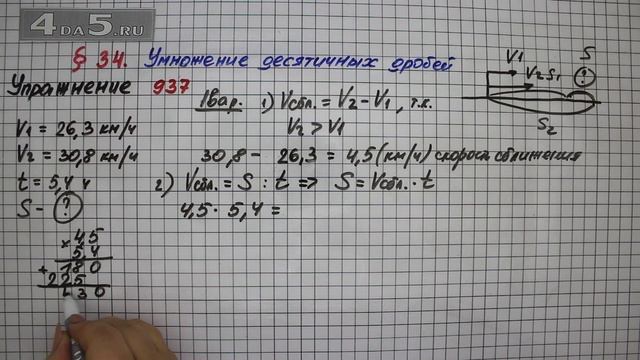 4DA5.RU
§ 34. Умножение десятичных дробей
Упражнение 937
V1 = 26,3 км/ч
V2 = 30,8 км/ч
t = 5,4 ч
S - ?
× 45
54
+ 180
225
430
I вар. 1) Vсбл. = V2 - V1, т.к.
V2 > V1
30,8 - 26,3 = 4,5 (км/ч) скорость сближения
2) Vсбл. = S : t => S = Vсбл. · t
4,5 · 5,4 =
V1
V2
S1
S
?
S2